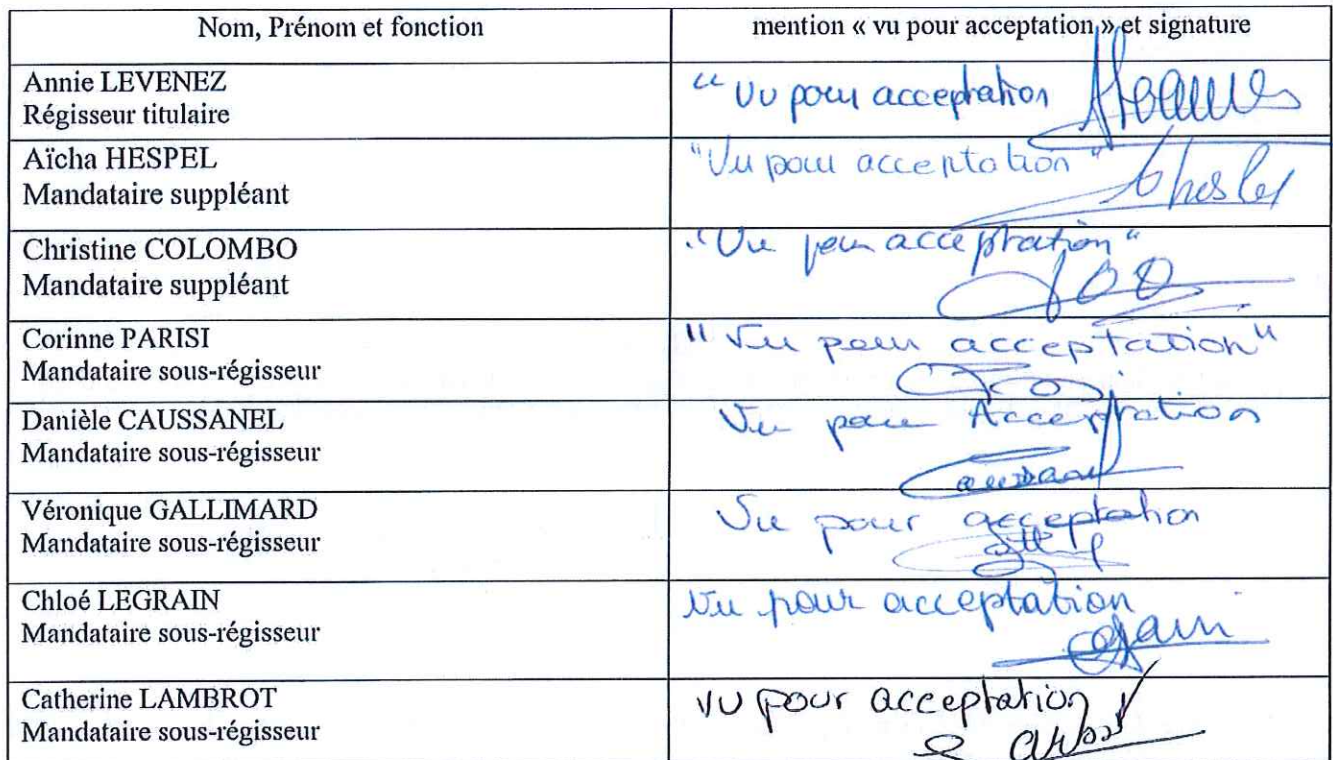 Nom, Prénom et fonction
mention « vu pour acceptation » et signature
Annie LEVENEZ
Régisseur titulaire
“ Vu pour acceptation
Aïcha HESPEL
Mandataire suppléant
"Vu pour acceptation"
Christine COLOMBO
Mandataire suppléant
"Vu pour acceptation"
Corinne PARISI
Mandataire sous-régisseur
"Vu pour acceptation"
Danièle CAUSSANEL
Mandataire sous-régisseur
Vu pour Acceptation
Véronique GALLIMARD
Mandataire sous-régisseur
Vu pour acceptation
Chloé LEGRAIN
Mandataire sous-régisseur
Vu pour acceptation
Catherine LAMBROT
Mandataire sous-régisseur
VU pour acceptation